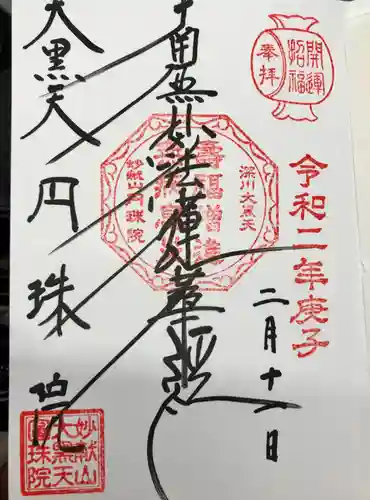 開運
招福
奉拝
令和二年庚子
二月十一日
南無妙法蓮華経
深川大黒天
壽福増進
妙献山円珠院
大黒天 円珠院
妙献山
大黒天
圓珠院